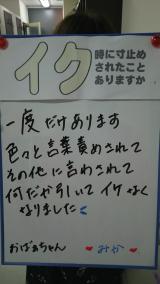 イク
時に寸止め
されたこと
ありますか
一度だけあります
色々と言葉責めされて
その他に言わされて
何だか引いてイケなく
なりました
おばあちゃん
みか